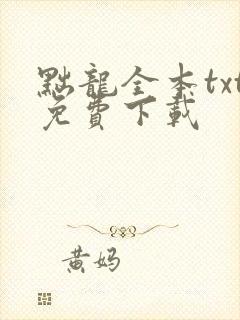 點龍全本txt
免費下載
黄妈